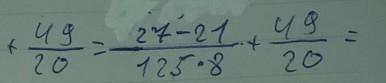 + 49/20 = (27-21)/(125·8) + 49/20 =